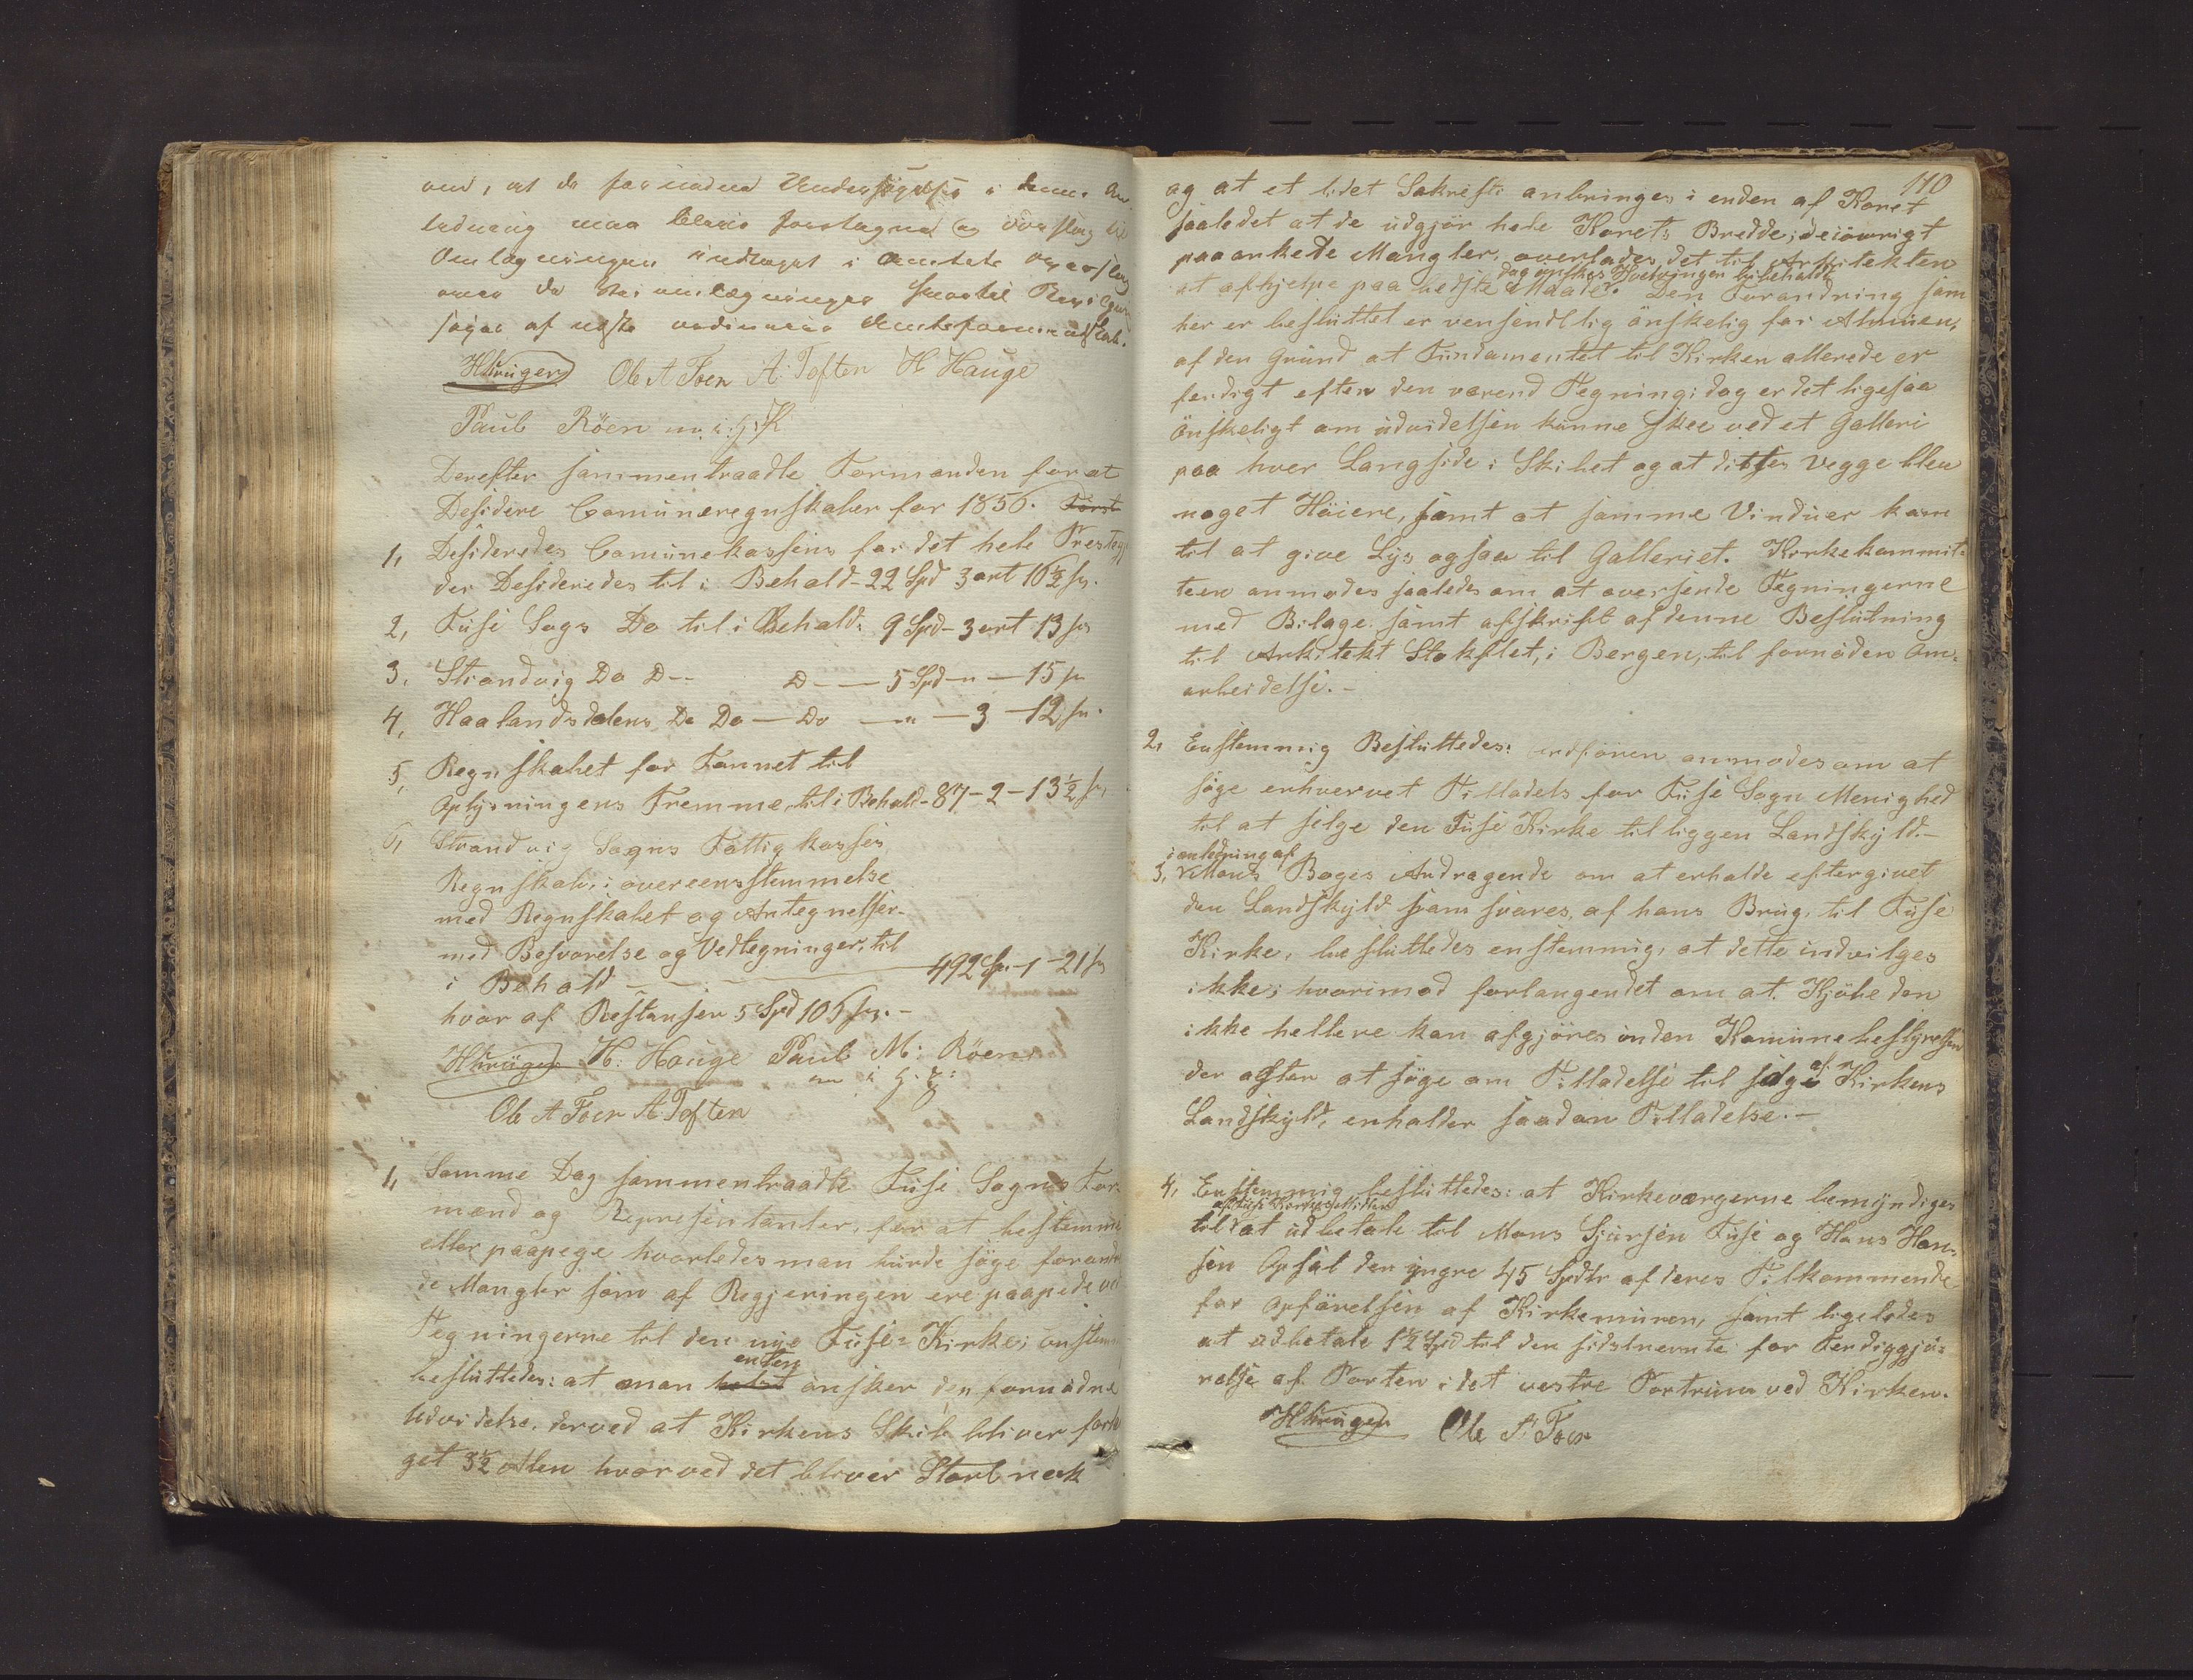 om, at de fornødne Undersøgelser i denne An-
ledning maa blive foretagne og Overslag til
Omlægningen indtaget i Amtets Overslag
over de Veiomlægninger hvortil Bevilgning
søges af næste ordinaire Amtsformandskab.
HKrüger Ole A Foer A: Toften H Hauge
Paul Röen m. i. H. P.
Derefter sammentraadte Formanden for at
Desidere Comüneregnskaber for 1856. Först
1, Desideredes Comünekassens for det hele Prestegj
der Desideredes til i Behold - 22 Spd 3 ort 16½ s.
2, Füse Sogs Do til i Behold: 9 Spd - 3 ort 13 s
3, Strandvig Do D-- D-- — 5 Spd - " - 15 s
4, Haalandsdalens Do Do — Do — " — 3 - 12 s.
5, Regnskabet for Fonnet til
Oplysningens Fremme, til i Behold - 87 - 2 - 13½ s,
6, Strandvig Sogns Fattigkasses
Regnskab, i overeensstemmelse
med Regnskabet og Antegnelser
med Besvarelse og Vedtegninger, til
i Behold — 492 Sp - 1 - 21 s
hvor af Restanser 5 Spd 106 s. -
HKrüger H: Hauge Paul M: Röen
m i H. P:
Ole A Foer A Toften
1, Samme Dag sammentraadte Füse Sogns For-
mænd og Representanter, for at bestemme
eller paapege hvorledes man bürde söge forandr
de Mangler som af Regjeringen ere paapede ved
Tegningerne til den nye Füse= Kirke; enstem
besluttedes: at man helst enten önsker den fornödne
Udvidelse, derved at Kirkens Skib bliver forlæ
get 3½ Alen hvorved det bliver Stort nok
110
og at et lidet Sakresti anbringes i enden af Koret
saaledet at de üdgjör hele Korets Bredde; de iövrigt
paaankede Mangler, overlades det til Arkitekten
at afhjelpe paa bedste Maade. dog önskes Hvelvingen bibeholdt Den Forandring som
her er beslüttet er vensendtlig önskelig for Almüen,
af den Gründ at Fündamentet til Kirken allerede er
ferdigt efter den værend Tegning; dog er det ligesaa
Önskeligt om üdvidelsen künne skee ved et Galleri
paa hver Langside i Skibet og at disses Vegge blev
noget Höiere, samt at samme Vindüer kom
til at give Lys ogsaa til Galleriet. Kirkekommit-
teen anmodes saaledes om at oversende Tegningerne
med Bilage samt afskrift af denne Beslütning
til Arkitekt Stokflet, i Bergen, til fornöden Om-
arbeidelse. -
2, Enstemmig Beslüttedes: ordfören anmodes om at
söge erhvervet Tilladels for Füse Sogn Menighed
til at selge den Füse Kirke tilliggen Landskyld. -
3, i anledning af Mons Boges Andragende om at erholde eftergivet
den Landskyld som svares, af hans Brüg, til Füse
Kirke, beslüttedes enstemmig, at dette indvilges
ikke; hvorimod forlangendet om at Kjöbe den
ikke hellere kan afgjöres inden Komünebestyrelsen
der agter at söge om Tilladelse til selge af Kirkens
Landskyld, erholder saadan Tilladelse. -
4, Enstemmig beslüttedes: at Kirkeværgerne bemyndiges
til at af Füse Kirkes Midler üdbetale til Mons Sjürsen Füse og Hans Han-
sen Opsal den yngre 45 Spdlr af deres Tilkommende
for Opförelsen af Kirkemüren, samt ligeledes
at üdbetale 1½ Spd til den sidstnevnte for Ferdiggjö-
relse af Porten i det vestre Portrüm ved Kirken.
HKrüger Ole A Foer